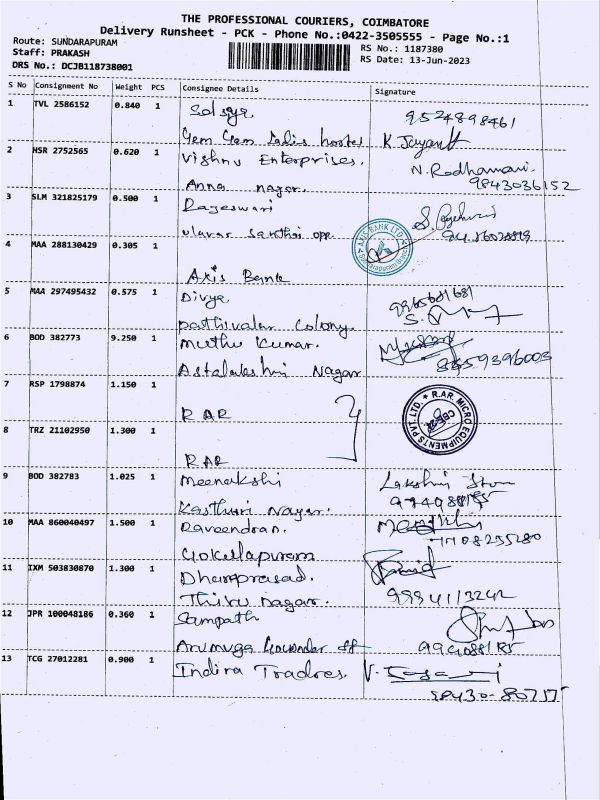 THE PROFESSIONAL COURIERS, COIMBATORE
Delivery Runsheet - PCK - Phone No.:0422-3505555 - Page No.:1
Route: SUNDARAPURAM
Staff: PRAKASH
DRS No.: DCJB118738001
RS No.: 1187380
RS Date: 13-Jun-2023
S No Consignment No Weight PCS Consignee Details Signature
1 TVL 2586152 0.840 1
9524898461
Gem Gem Ladis hostel K. Jayanth
2 HSR 2752565 0.620 1 Vishnu Enterprises.
Anna nagar.
N. Radhamani.
9843036152
3 SLM 321825179 0.500 1 Rajeswari
ulavar santhai opp
4 MAA 288130429 0.305 1
Axis Bank
AXIS BANK LTD
5 MAA 297495432 0.575 1 Divya
Colony
6 BOD 382773 9.250 1 Muthu Kumar.
Astalakshmi Nagar
7 RSP 1798874 1.150 1
RAR
R.AR. MICRO EQUIPMENTS PVT. LTD.
8 TRZ 21102950 1.300 1
RAR
9 BOD 382783 1.025 1 Meenakshi
Kasthuri Nagar.
Lakshmi
10 MAA 860040497 1.500 1 Raveendran.
Gokullapuram
11 IXM 503830870 1.300 1 Dhamprasad.
Thiru nagar.
9994113242
12 JPR 100048186 0.360 1 Sampath
Arumuga Gounder st
13 TCG 27012281 0.900 1 Indira Tradres.